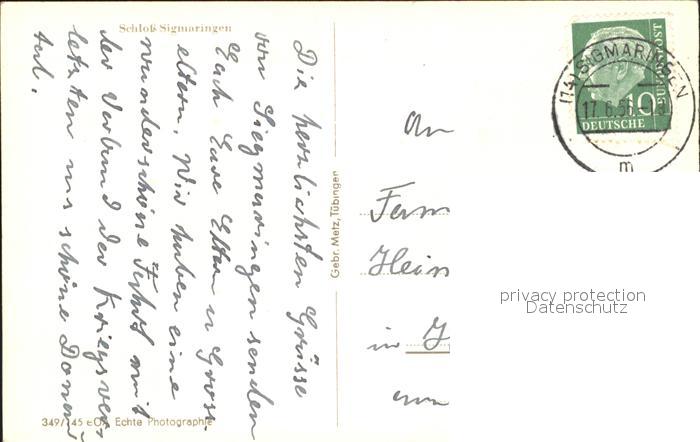 Schloß Sigmaringen
Die herzlichsten Grüsse
von Siegmaringen senden
Euch Eure Eltern u Gross-
eltern. Wir haben eine
wunderschöne Fahrt mit
der Verband der Kriegsver-
letzten ins schöne Donau
tal.
Gebr. Metz, Tübingen
349/745 Echte Photographie
An
Fam
Hein
in
(14) SIGMARINGEN
17.6.56
m
10
DEUTSCHE
BUNDESPOST
privacy protection
Datenschutz